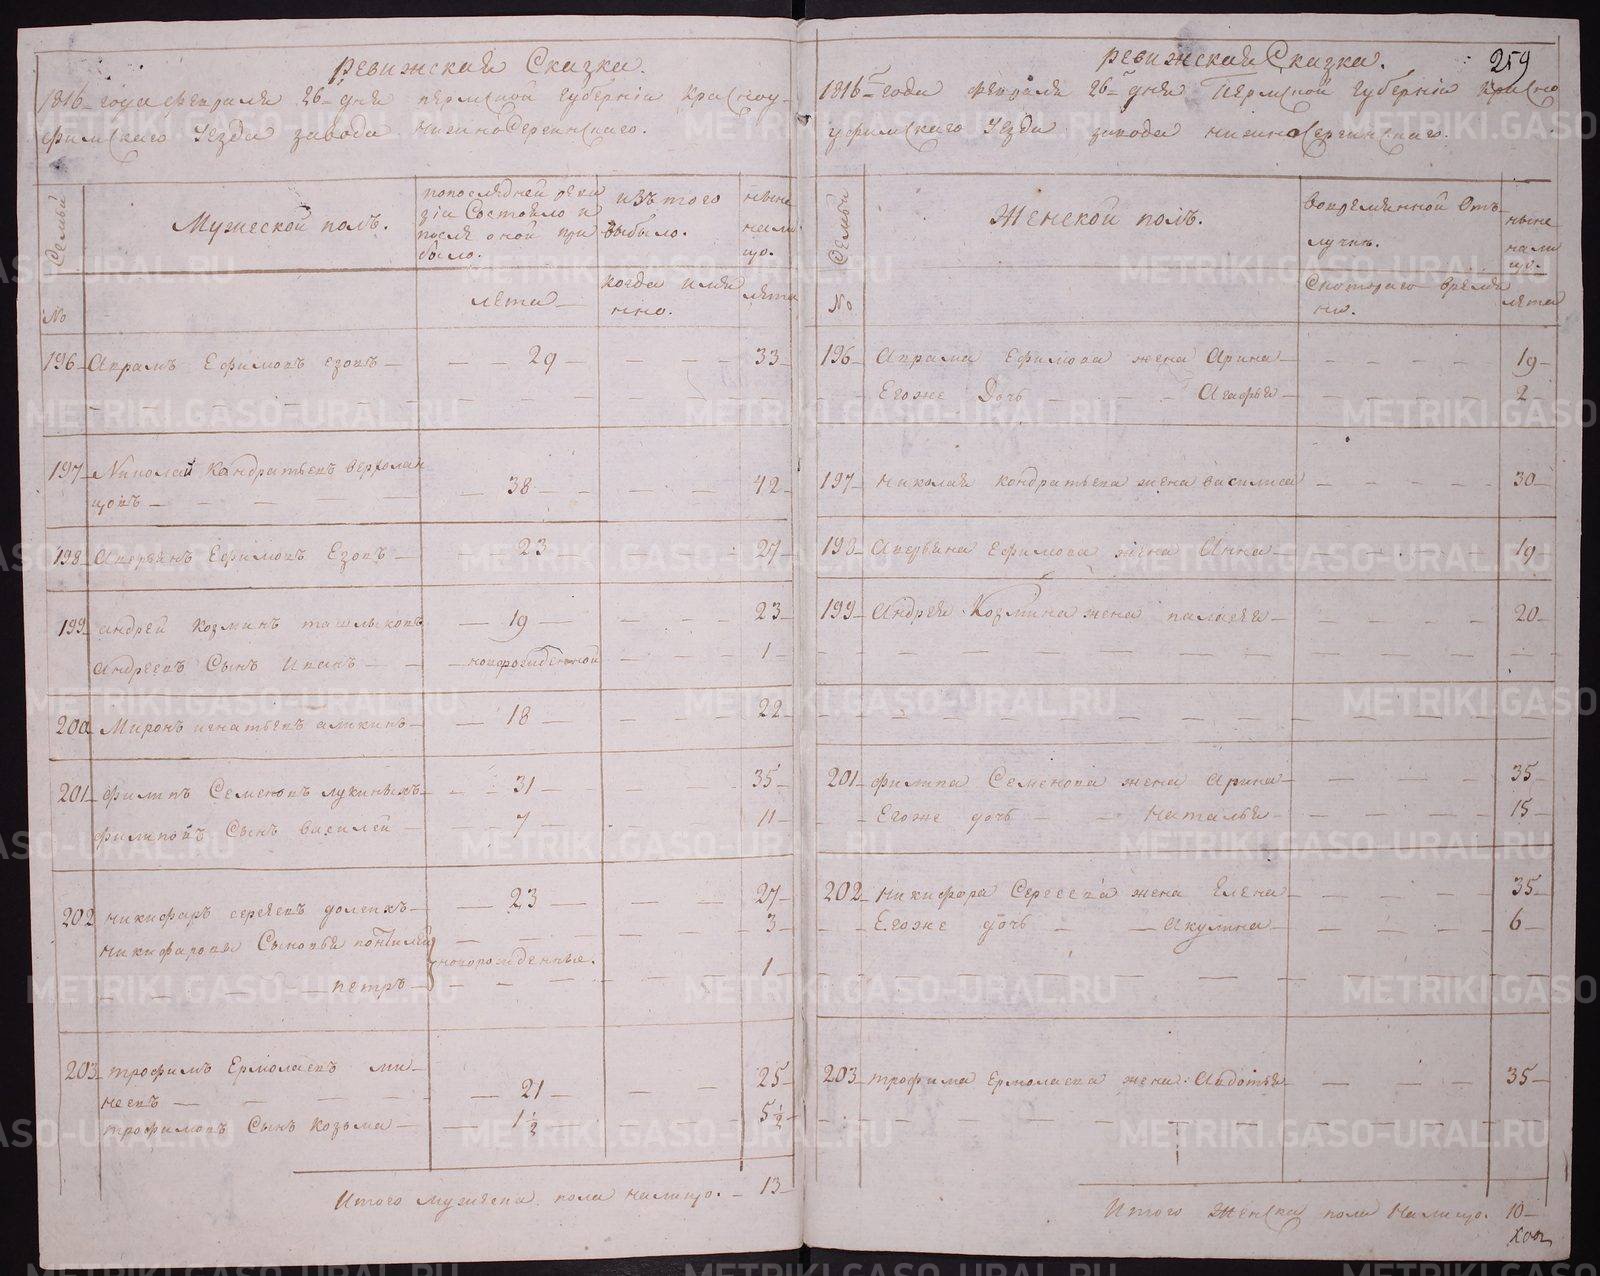 Ревижская Сказка.
1816 года февраля 26 дня пермской Губерніи Красноу-
фимскаго Уезда завода нижноСергинскаго.
Семьи
№
Мужеской полъ.
попоследней реви
зіи Состояло и
после оной при
было.
лета
изъ того
выбыло.
когда имя
нно.
ныне
нали
цо.
лета
196 Аврамъ Ефимовъ езовъ 29 33
197 Николай Кондратьевъ
цовъ 38 42
198 Аверьянъ Ефимовъ Езовъ 23 27
199 андрей Козминъ ташлыковъ 19 23
андреевъ Сынъ Иванъ новорожденной 1
200 Миронъ игнатьевъ аликинъ 18 22
201 филипъ Семеновъ лукиныхъ 31 35
филиповъ Сынъ василей 7 11
202 никифаръ сергеевъ долгихъ 23 27
никифаровы Сыновья понтилей 3
новорожденные.
петръ 1
203 трофимъ Ермолаевъ ми-
неевъ 21 25
трофимовъ Сынъ Козьма 1½ 5½
Итого мужеска пола налицо. 13
259
Ревижская Сказка.
1816 года февраля 26 дня Пермской Губерніи Красно
уфимскаго Уезда завода нижноСергинскаго.
Семьи
№
Женской полъ.
вовременной Отъ-
лучке.
Скотораго време
ни.
ныне
нали
цо.
лета
196 Аврама Ефимова жена Арина 19
Егоже Дочь Агафья 2
197 николая кондратьева жена василиса 30
198 Аверьяна Ефимова жена Анна 19
199 Андрея Козмина жена палагея 20
201 филипа Семенова жена Арина 35
Егоже дочь Наталья 15
202 никифора Сергеева жена Елена 35
Егоже дочь Акулина 6
203 трофима Ермолаева жена Авдотья 35
Итого Женска пола налицо. 10
METRIKI.GASO-URAL.RU